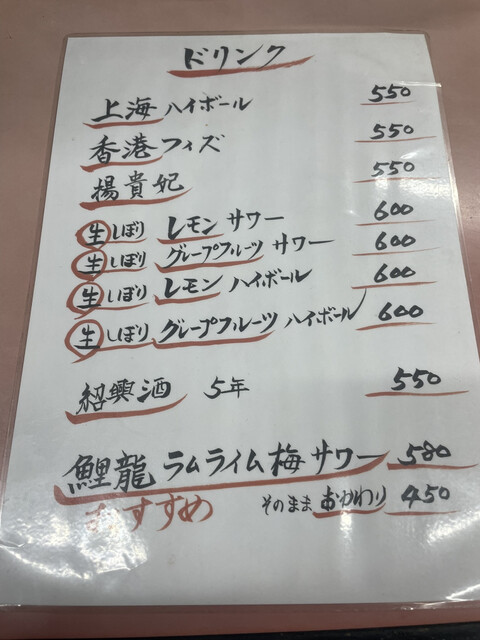 ドリンク
上海ハイボール 550
香港フィズ 550
楊貴妃 550
生しぼり レモン サワー 600
生しぼり グレープフルーツ サワー 600
生しぼり レモン ハイボール 600
生しぼり グレープフルーツ ハイボール 600
紹興酒 5年 550
鯉龍 ラムライム梅サワー 580
おすすめ そのまま おかわり 450